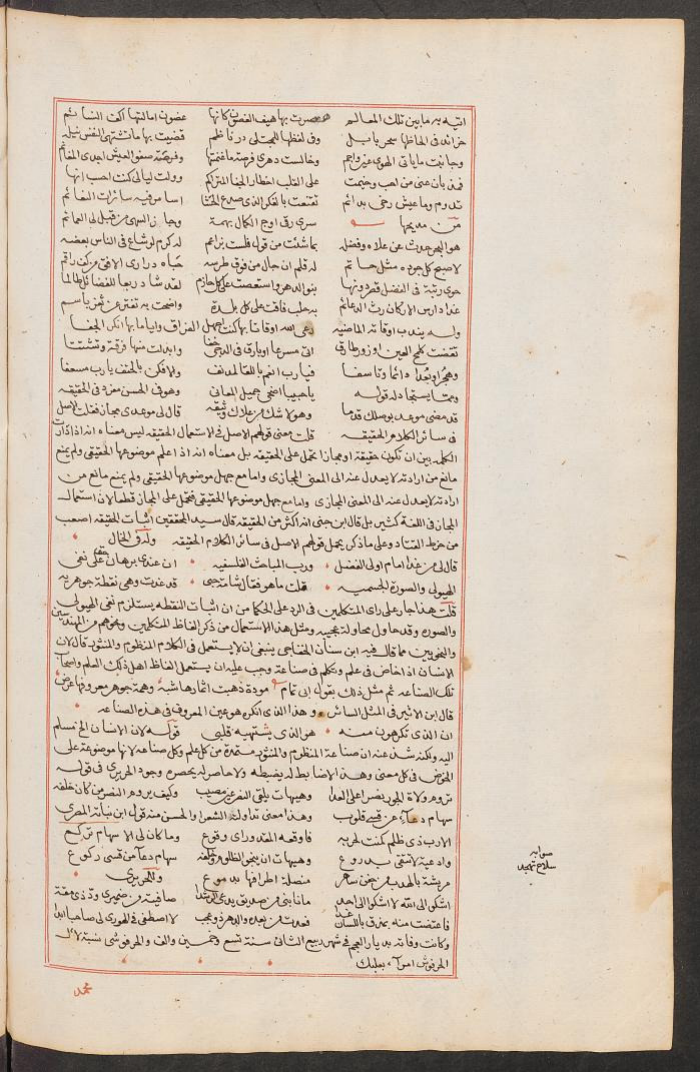 اتيه به ما بين تلك المعالم هصرت بها هيف الغصون كانها غصون امالتها اكف النسائم
خرائد فى الحاظها سحر بابل وفى لفظها للمجتلى در ناظم قضيت بها ما تشتهى النفس نيله
وجانبت ما ياتى الهوى غير واجم وخالست دهرى فرصة ما غنمتها
فمذ بان عنى من احب وخيمت على القلب اخطار الجفا المتراكم وولت ليالى كنت احسب انها
تدوم وما عيش رخى بدائم تقنعت بالفكر الذى صدع الحشا اسامر فيه سائرات النعائم
من مديحها سرى رقى اوج الكمال بهمة وجاز السهى من قبل لى العمائم
هو البحر حدث عن علاه وفضله بما شئت من قول فلست بزاعم له كرم لو شاع فى الناس بعضه
لاصبح كل جوده مثل حاتم له قلم ان جال من فوق طرسه حباه درارى الافق من كف راقم
حوى رتبة فى الفضل قصر دونها بنو الدهر واستعصت على كل حازم لقد شاد ربعا للفضائل طالما
غدا دارس الاركان رث الدعائم به حلب فاقت على كل بلدة واضحت به تفتر عن ثغر باسم
وله يندب اوقاته الماضيه رعى الله اوقاتا بها كنت اجهل الفراق واياما بها انكر الجفا
تقضت كلمح العين او زور طارق اتى مسرعا او بارق فى الدجى خفا وابدلت منها فرقة وتشتتا
وهجرا وبعدا دائما وتاسفا فيا رب انعم باللقا لمدنف والا فكن بالحتف يا رب مسعفا
ومما يستجاد له قوله يا حبيبا اضحى جميل المعانى وهو فى الحسن مفرد فى الحقيقه
قد مضى موعد بوصلك قدما وهو لا شك من علاك وثيقه قال لى موعدى مجاز فقلت الاصل
فى سائر الكلام الحقيقه قلت معنى قولهم الاصل فى الاستعمال الحقيقه ليس معناه انه اذا دارت
الكلمه بين ان تكون حقيقة او مجازا تحمل على الحقيقه بل معناه انه اذا علم موضوعها الحقيقى ولم يمنع
مانع من ارادته لا يعدل عنه الى المعنى المجازى واما مع جهل موضوعها الحقيقى ولم يمنع مانع من
ارادته لا يعدل عنه الى المعنى المجازى واما مع جهل موضوعها الحقيقى فتحمل على المجاز قطعا لان استعمال
المجاز فى اللغة كثير بل قال ابن جنى انه اكثر من الحقيقه قال سيد المحققين اثبات الحقيقه اصعب
من خرط القتاد وعلى ما ذكر يحمل قولهم الاصل فى سائر الكلام الحقيقه وله فى الخال
قال لى من غدا امام اولى الفضل ورب المباحث الفلسفيه ان عندى برهان حق على نفى
الهيولى والصورة الجسميه قلت ما هو فقال شامة حبى قد غدت وهى نقطة جوهريه
قلت هذا جار على راى المتكلمين فى الرد على الحكما من ان اثبات النقطه يستلزم نفى الهيولى
والصوره وقد حاول محاولة عجيبه ومثل هذا الاستعمال من ذكر الفاظ المتكلمين ونحوهم من المهندسين
والنحويين مما قال فيه ابن سنان الخفاجى ينبغى ان لا يستعمل فى الكلام المنظوم والمنثور قال لان
الانسان اذا خاض فى علم وتكلم فى صناعة وجب عليه ان يستعمل الفاظ اهل ذلك العلم واصحاب
تلك الصناعه ثم مثل ذلك بقول ابى تمام مودة ذهبت اثمارها شبه وهمة جوهر معروفها عرض
قال ابن الاثير فى المثل السائر وهذا الذى انكره هو عين المعروف فى هذه الصناعه
ان الذى تكرهون منه هو الذى يشتهيه قلبى قوله لان الانسان الخ مسلم
اليه ولكنه شذ عنه ان صناعة المنظوم والمنثور مستمدة من كل علم وكل صناعه لانها موضوعة على
الخوض فى كل معنى وهذا لا ضابط له يضبطه ولا حاصر له يحصره وجود الحريرى فى قوله
تروم ولاة الجور نصرا على العدا وهيهات يلقى النصر غير مصيب وكيف يروم النصر من كان خلفه
سهام دعاء من قسى قلوب وهذا معنى تداوله الشعرا والحسن منه قول ابن نباته المصرى
الا رب ذى ظلم كمنت لحربه فاوقعه المقدور اى وقوع وما كان لى الا سهام تركع
وادعية لا تتقى بدروع وهيهات ان ينجو الظلوم وخلفه سهام دعا من قسى ركوع
مريشة بالهدب من جفن ساهر منصلة اطرافها بدموع وللحريرى
اشكو الى الله لا اشكو الى احد ما نابنى من صديق يدعى الرشدا صافيته من ضميرى ود ذى مقة
فاعتضت منه بمذق باللسان غدا فعدت من بعد والدهر ذو عجب لا اصطفى فى الهوى لى صاحبا ابدا
وكانت وفاته بديار العجم فى شهر ربيع الثانى سنة تسع وخمسين والف والحرفوشى نسبة لال
الحرفوش امراء بعلبك
محمد
صوابه
سلام تهجد